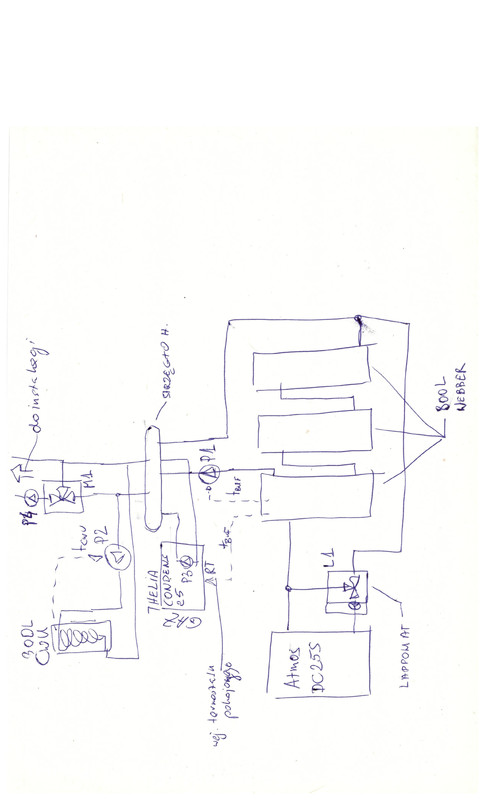 do instalacji
P4
M1
P2
tcwu
300L
CWU
SPRZĘGŁO H.
P1
THELIA
CONDENS
25
P3
ART
wej. termostatu
pokojowego
tBUF
800L
WEBBER
L1
Atmos
DC25S
LADDOMAT